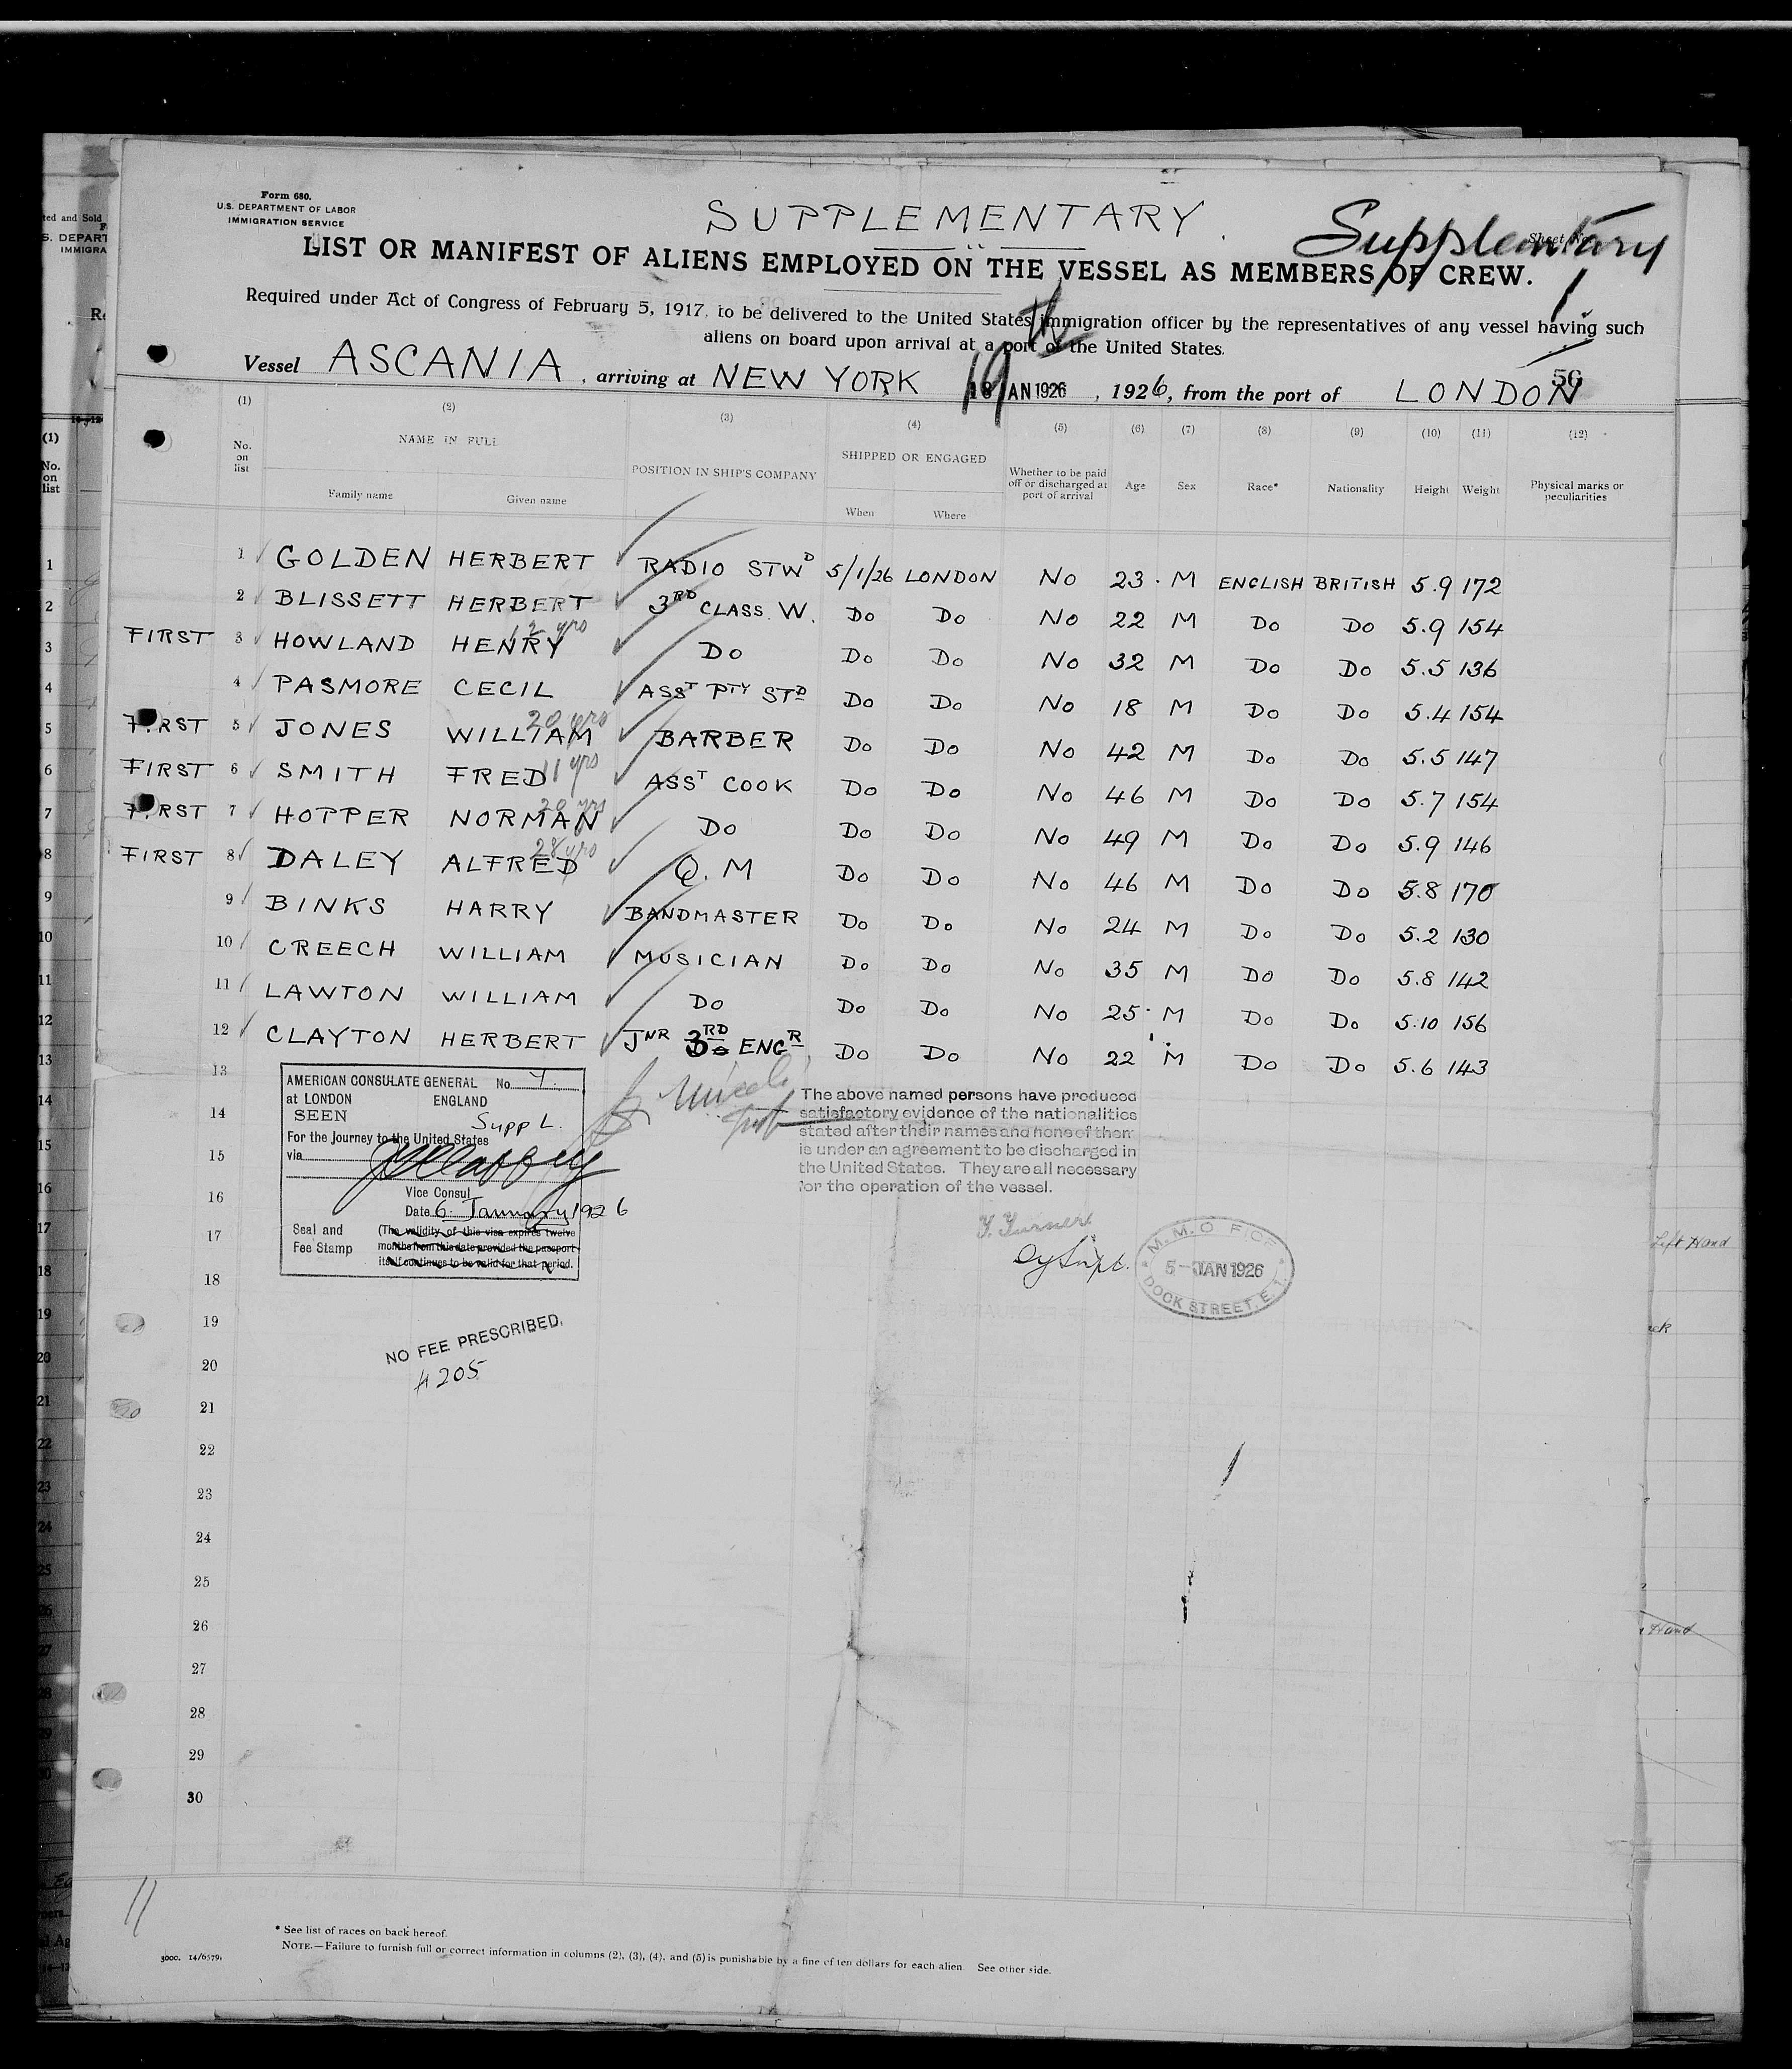 Form 680.
U.S. DEPARTMENT OF LABOR
IMMIGRATION SERVICE
SUPPLEMENTARY.
Supplementary
Sheet No.
1
LIST OR MANIFEST OF ALIENS EMPLOYED ON THE VESSEL AS MEMBERS OF CREW.
Required under Act of Congress of February 5, 1917, to be delivered to the United States immigration officer by the representatives of any vessel having such
aliens on board upon arrival at a port of the United States.
56
Vessel ASCANIA, arriving at NEW YORK 19th JAN 1926, 1926, from the port of LONDON
(1) (2) (3) (4) (5) (6) (7) (8) (9) (10) (11) (12)
No. on list NAME IN FULL POSITION IN SHIP'S COMPANY SHIPPED OR ENGAGED Whether to be paid off or discharged at port of arrival Age Sex Race* Nationality Height Weight Physical marks or peculiarities
Family name Given name When Where
1 GOLDEN HERBERT RADIO STWD 5/1/26 LONDON No 23 M ENGLISH BRITISH 5.9 172
2 BLISSETT HERBERT 3RD CLASS W. Do Do No 22 M Do Do 5.9 154
12 yrs
FIRST 3 HOWLAND HENRY Do Do Do No 32 M Do Do 5.5 136
4 PASMORE CECIL ASST PTY STD Do Do No 18 M Do Do 5.4 154
20 yrs
FIRST 5 JONES WILLIAM BARBER Do Do No 42 M Do Do 5.5 147
FIRST 6 SMITH FRED 11 yrs ASST COOK Do Do No 46 M Do Do 5.7 154
20 yrs
FIRST 7 HOPPER NORMAN Do Do Do No 49 M Do Do 5.9 146
28 yrs
FIRST 8 DALEY ALFRED Q.M Do Do No 46 M Do Do 5.8 170
9 BINKS HARRY BANDMASTER Do Do No 24 M Do Do 5.2 130
10 CREECH WILLIAM MUSICIAN Do Do No 35 M Do Do 5.8 142
11 LAWTON WILLIAM Do Do Do No 25 M Do Do 5.10 156
12 CLAYTON HERBERT JNR 3RD ENGR Do Do No 22 M Do Do 5.6 143
13
14
15
16
17
18
19
20
21
22
23
24
25
26
27
28
29
30
AMERICAN CONSULATE GENERAL No. 7.
at LONDON ENGLAND
SEEN Supp L.
For the Journey to the United States
via
Vice Consul
Date 6 January 1926
Seal and Fee Stamp
(The validity of this visa expires twelve
months from this date provided the passport
itself continues to be valid for that period.
NO FEE PRESCRIBED.
# 205
The above named persons have produced
satisfactory evidence of the nationalities
stated after their names and none of them
is under an agreement to be discharged in
the United States. They are all necessary
for the operation of the vessel.
Y. Turner
Dy Supt.
M.M. OFFICE
5 - JAN 1926
DOCK STREET, E.1.
Left Hand
Hand
11
* See list of races on back hereof.
NOTE.—Failure to furnish full or correct information in columns (2), (3), (4), and (5) is punishable by a fine of ten dollars for each alien. See other side.
300c. 14/6579.